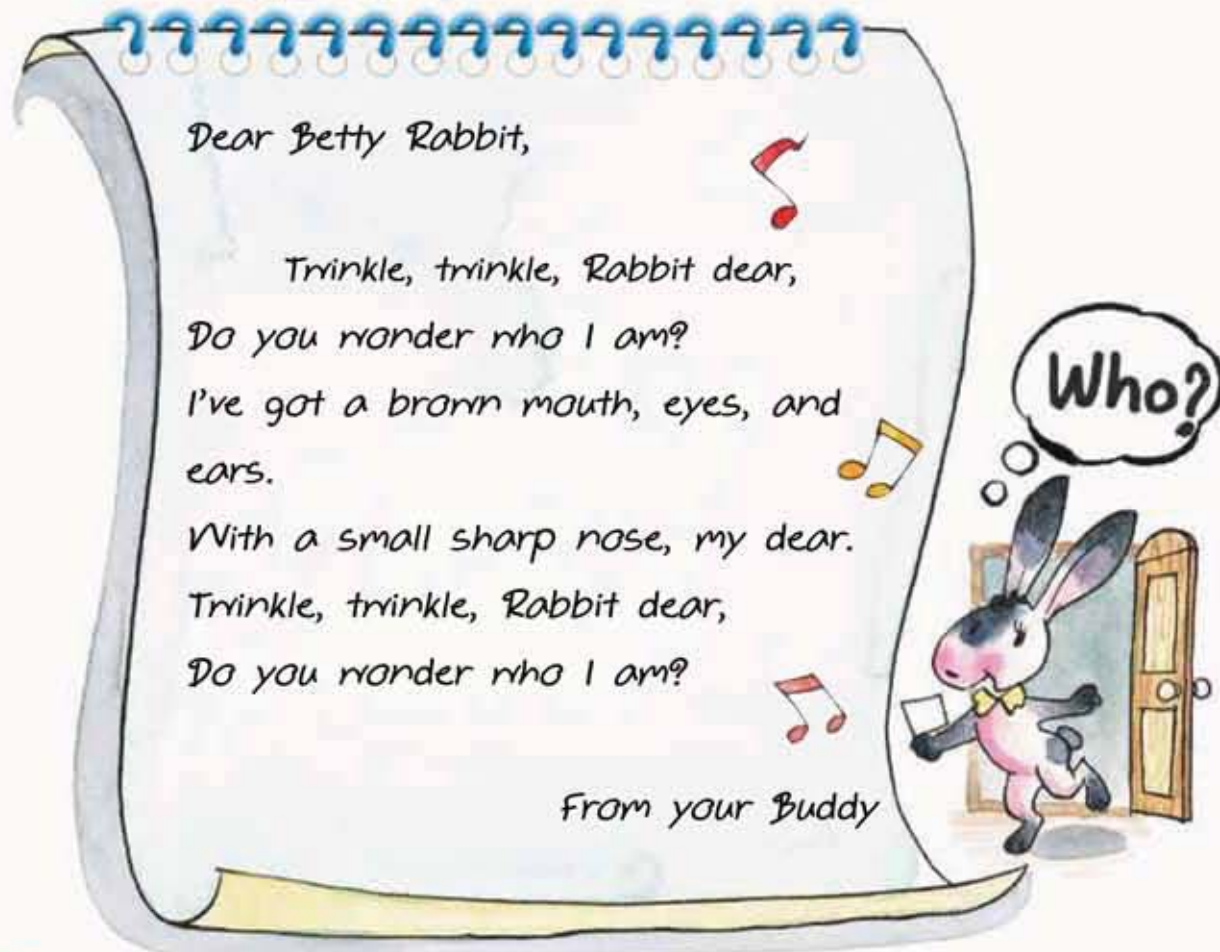 Dear Betty Rabbit,
Twinkle, twinkle, Rabbit dear,
Do you wonder who I am?
I've got a brown mouth, eyes, and
ears.
With a small sharp nose, my dear.
Twinkle, twinkle, Rabbit dear,
Do you wonder who I am?
From your Buddy
Who?